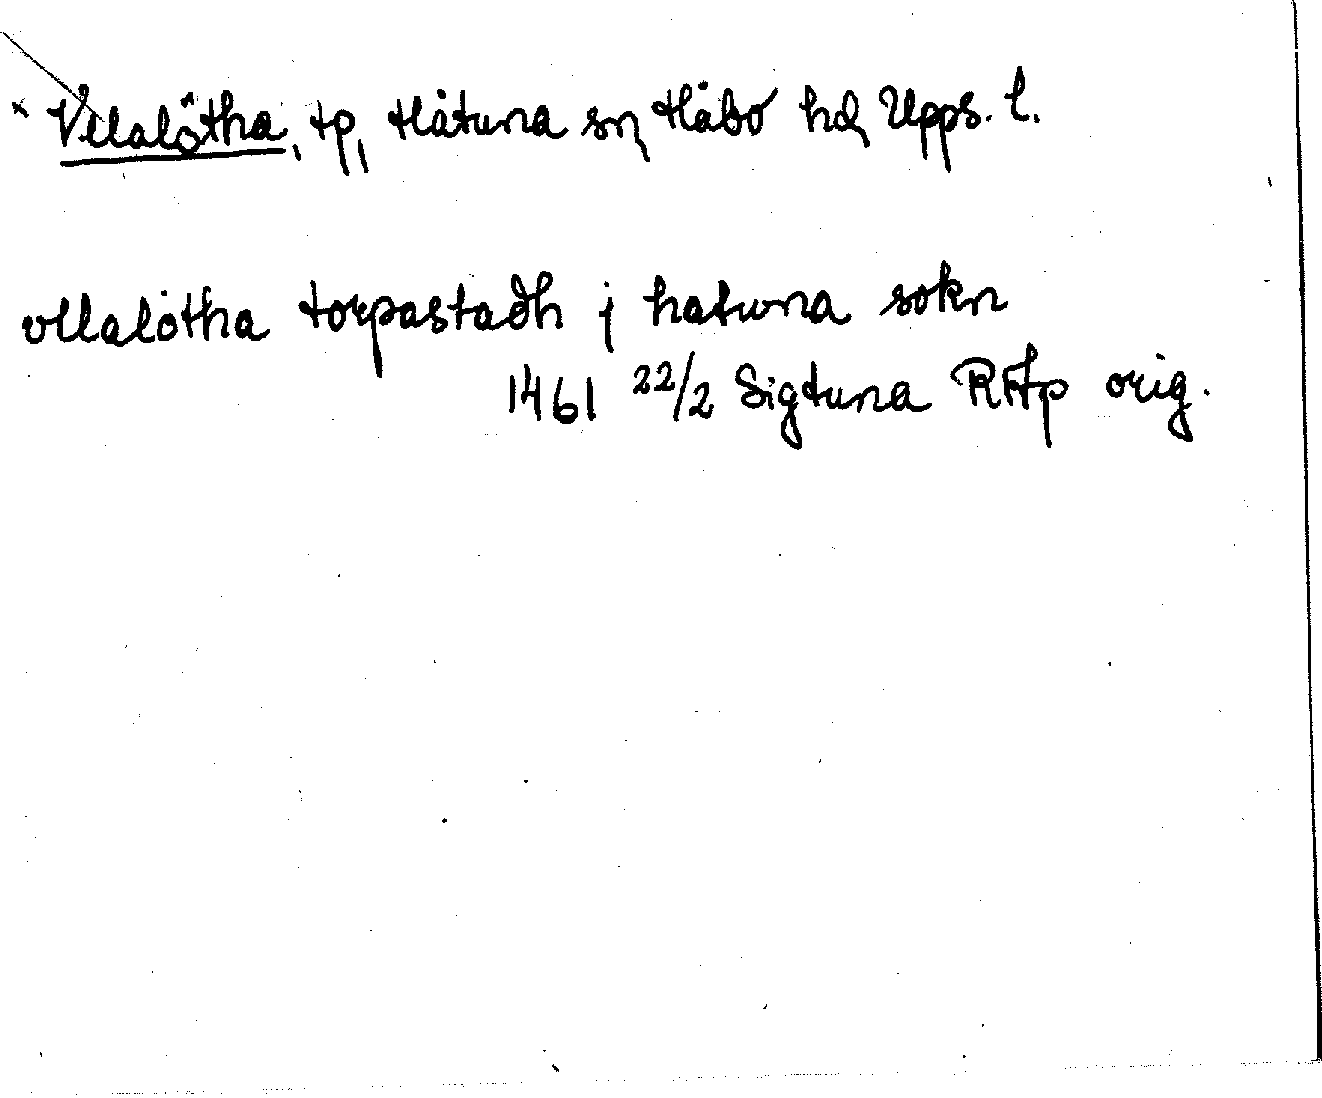 × Vllalötha, tp, Håtuna sn, Håbo hd, Upps. l.
vllalötha torpastadh j hatuna sokn
1461 22/2 Sigtuna RAp orig.